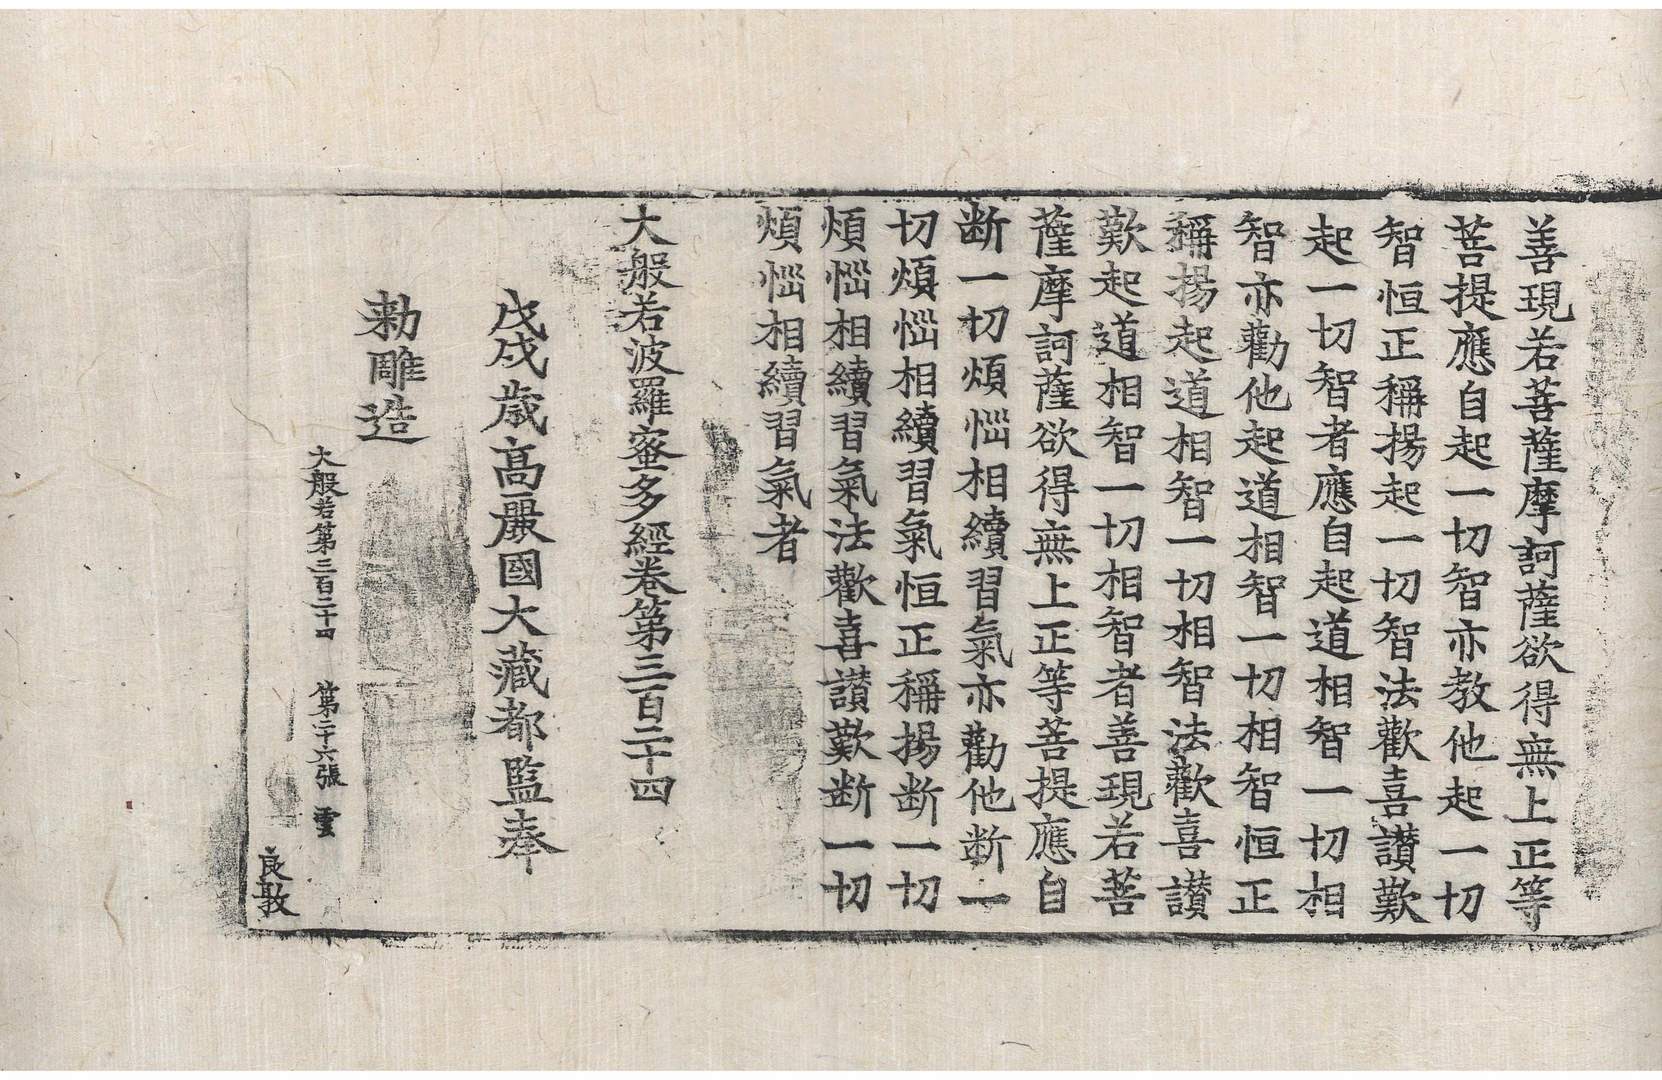 善現若菩薩摩訶薩欲得無上正等
菩提應自起一切智亦教他起一切
智恒正稱揚起一切智法歡喜讃歎
起一切智者應自起道相智一切相
智亦勸他起道相智一切相智恒正
稱揚起道相智一切相智法歡喜讃
歎起道相智一切相智者善現若菩
薩摩訶薩欲得無上正等菩提應自
断一切煩惱相續習氣亦勸他断一
切煩惱相續習氣恒正稱揚断一切
煩惱相續習氣法歡喜讃歎断一切
煩惱相續習氣者
大般若波羅蜜多經卷第三百二十四
戊戌歲髙麗國大藏都監奉
勅雕造
大般若第三百二十四 第二十六張 雲
良敦